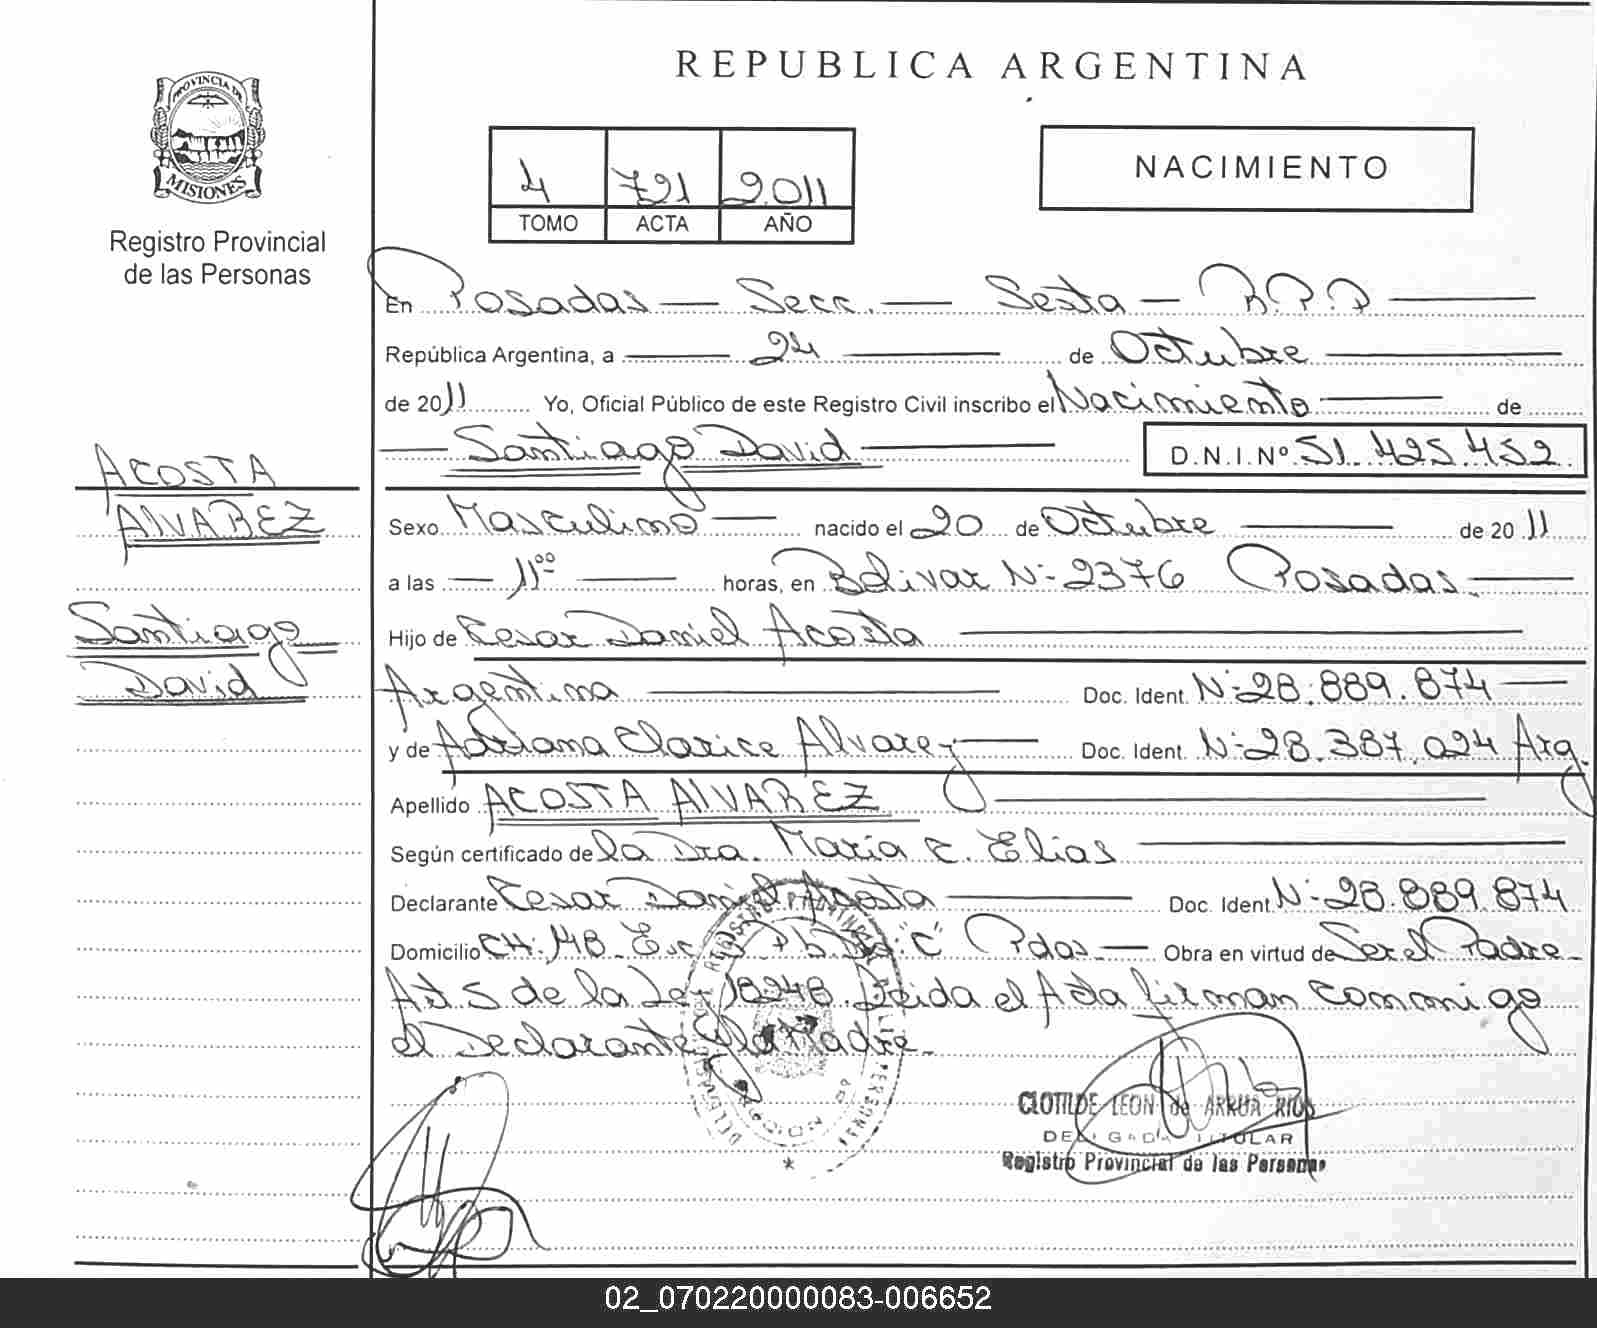 REPUBLICA ARGENTINA
PROVINCIA DE
MISIONES
Registro Provincial
de las Personas
4 721 2011
TOMO ACTA AÑO
NACIMIENTO
En Posadas — Secc. — Sexta — R.P.P
República Argentina, a 24 de Octubre
de 2011 Yo, Oficial Público de este Registro Civil inscribo el Nacimiento de
Santiago David D.N.I.Nº 51.425.452
ACOSTA
ALVAREZ
Santiago
David
Sexo Masculino nacido el 20 de Octubre de 2011
a las 11⁰⁰ horas, en Bolivar Nº 2376 Posadas
Hijo de Cesar Daniel Acosta
Argentina Doc. Ident. Nº 28.889.874
y de Adriana Clarice Alvarez Doc. Ident. Nº 28.387.024 Arg.
Apellido ACOSTA ALVAREZ
Según certificado de la Dra. Maria C. Elias
Declarante Cesar Daniel Acosta Doc. Ident Nº 28.889.874
Domicilio CH. 148 "C" Pdas Obra en virtud de Ser el Padre
Art 5 de la Ley 18248. Leida el Acta firman conmigo
el Declarante y la Madre.
CLOTILDE LEON de ARRUA RIOS
DELEGADA TITULAR
Registro Provincial de las Personas
02_070220000083-006652